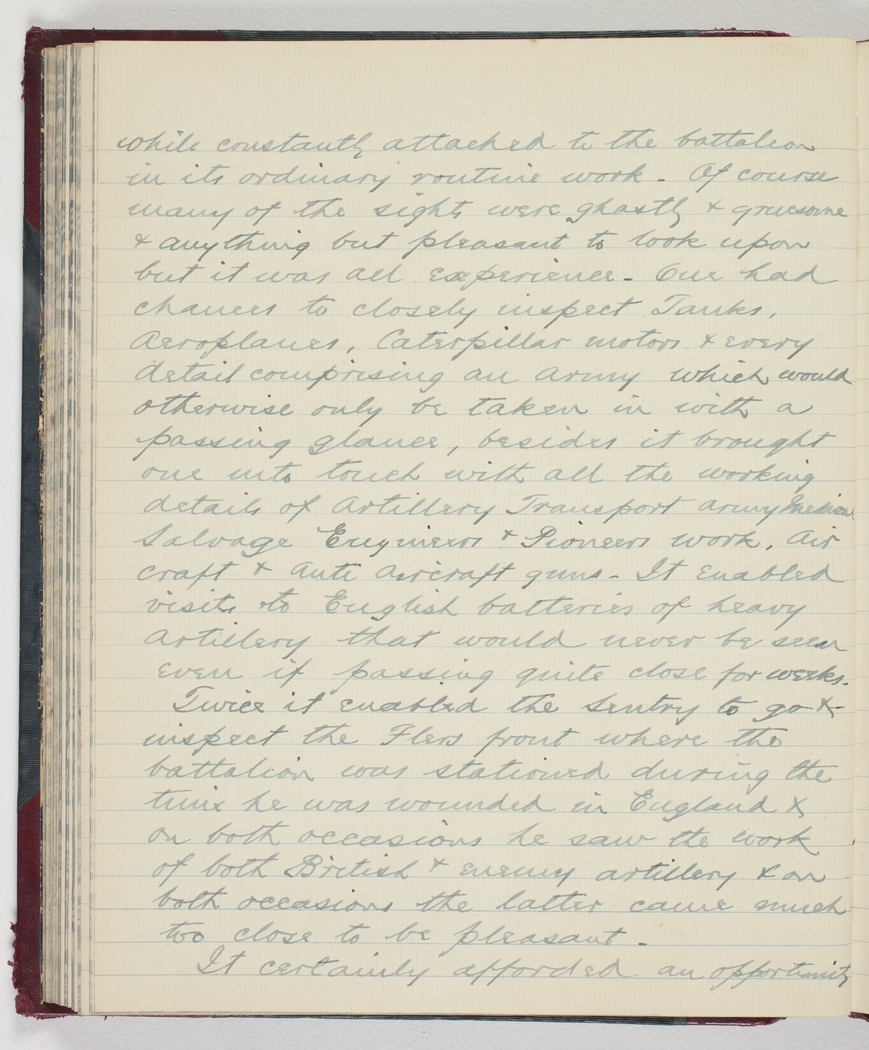 while constantly attached to the battalion
in its ordinary routine work - Of course
many of the sights were ghastly & gruesome
& anything but pleasant to look upon
but it was all experience - One had
chances to closely inspect Tanks,
Aeroplanes, Caterpillar motors & every
detail comprising an army which would
otherwise only be taken in with a
passing glance, besides it brought
one into touch with all the working
details of Artillery Transport army Medical
Salvage Engineers & Pioneers work, Air
craft & Anti Aircraft guns - It enabled
visits to English batteries of heavy
artillery that would never be seen
even if passing quite close for weeks.
Twice it enabled the Sentry to go &
inspect the Flers front where the
battalion was stationed during the
time he was wounded in England &
on both occasions he saw the work
of both British & enemy artillery & on
both occasions the latter came much
too close to be pleasant -
It certainly afforded an opportunity